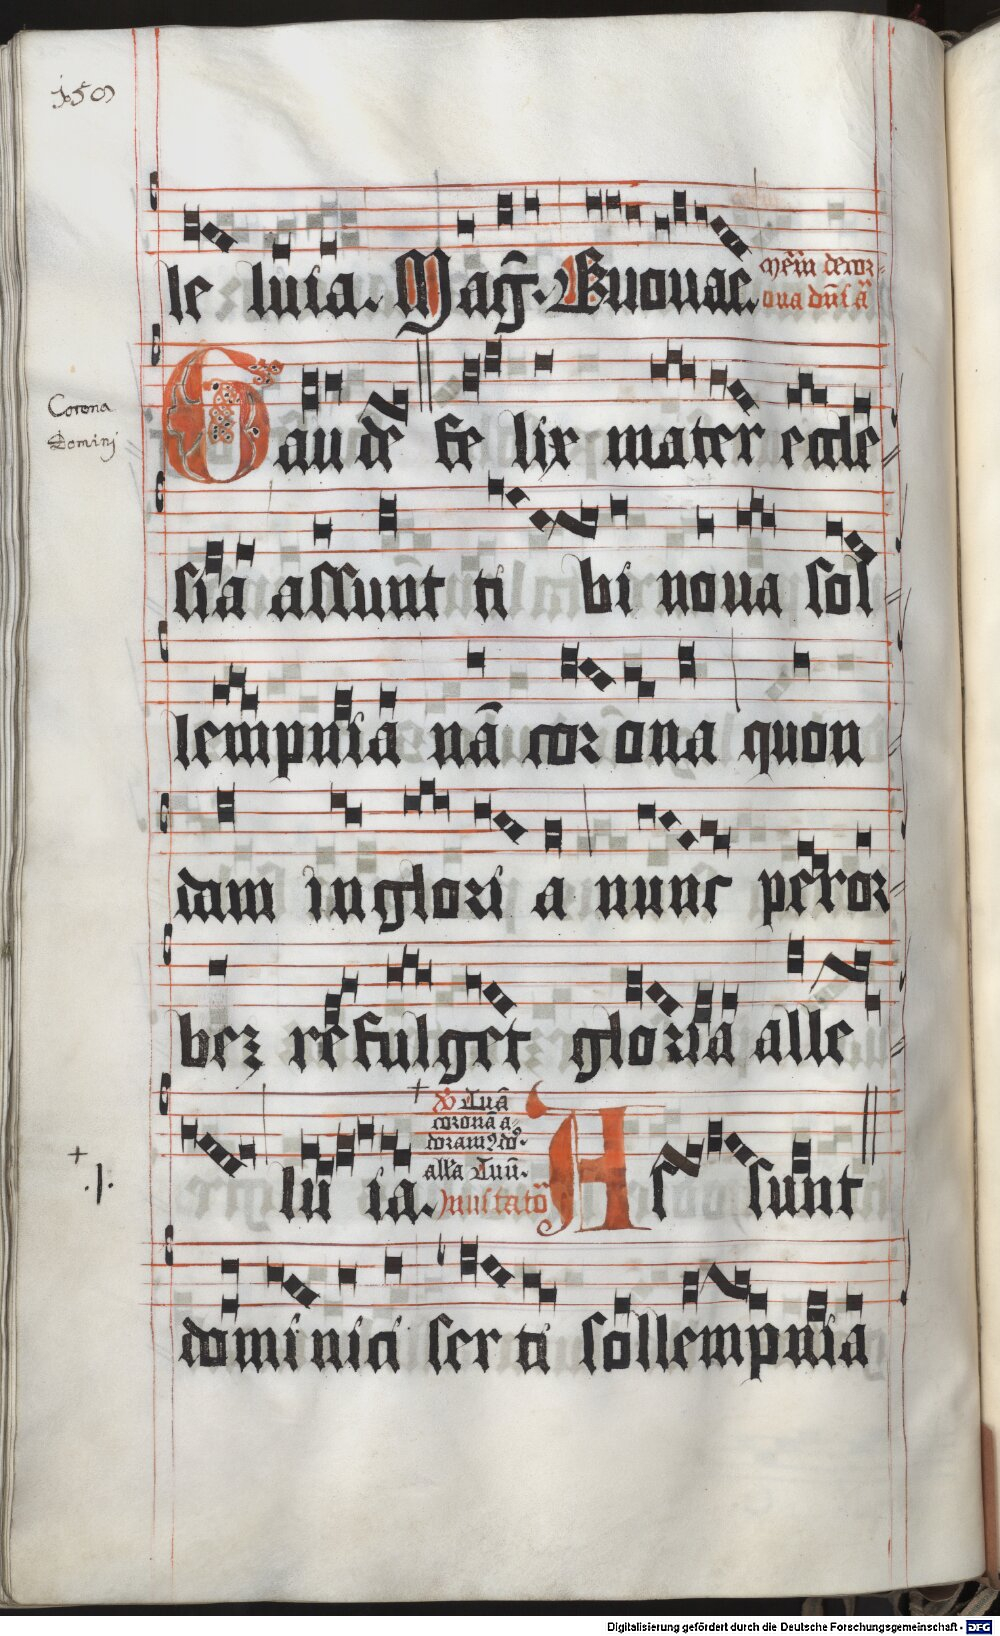 159
le luia. Mag̃. Euouae. Mẽm de cor
ona dñi ã
Corona
Domini
Gaude fe lix mater eccle
sia assunt ti bi noua sol
lempnia nã cor ona quon
dam in glori a nunc per or
bez refulget gloria alle
lu ia. Tuã
coronã a
doram9 do.
alła Tuũ.
Inuitatõ
As sunt
dominici ser ti sollempnia
Digitalisierung gefördert durch die Deutsche Forschungsgemeinschaft - DFG